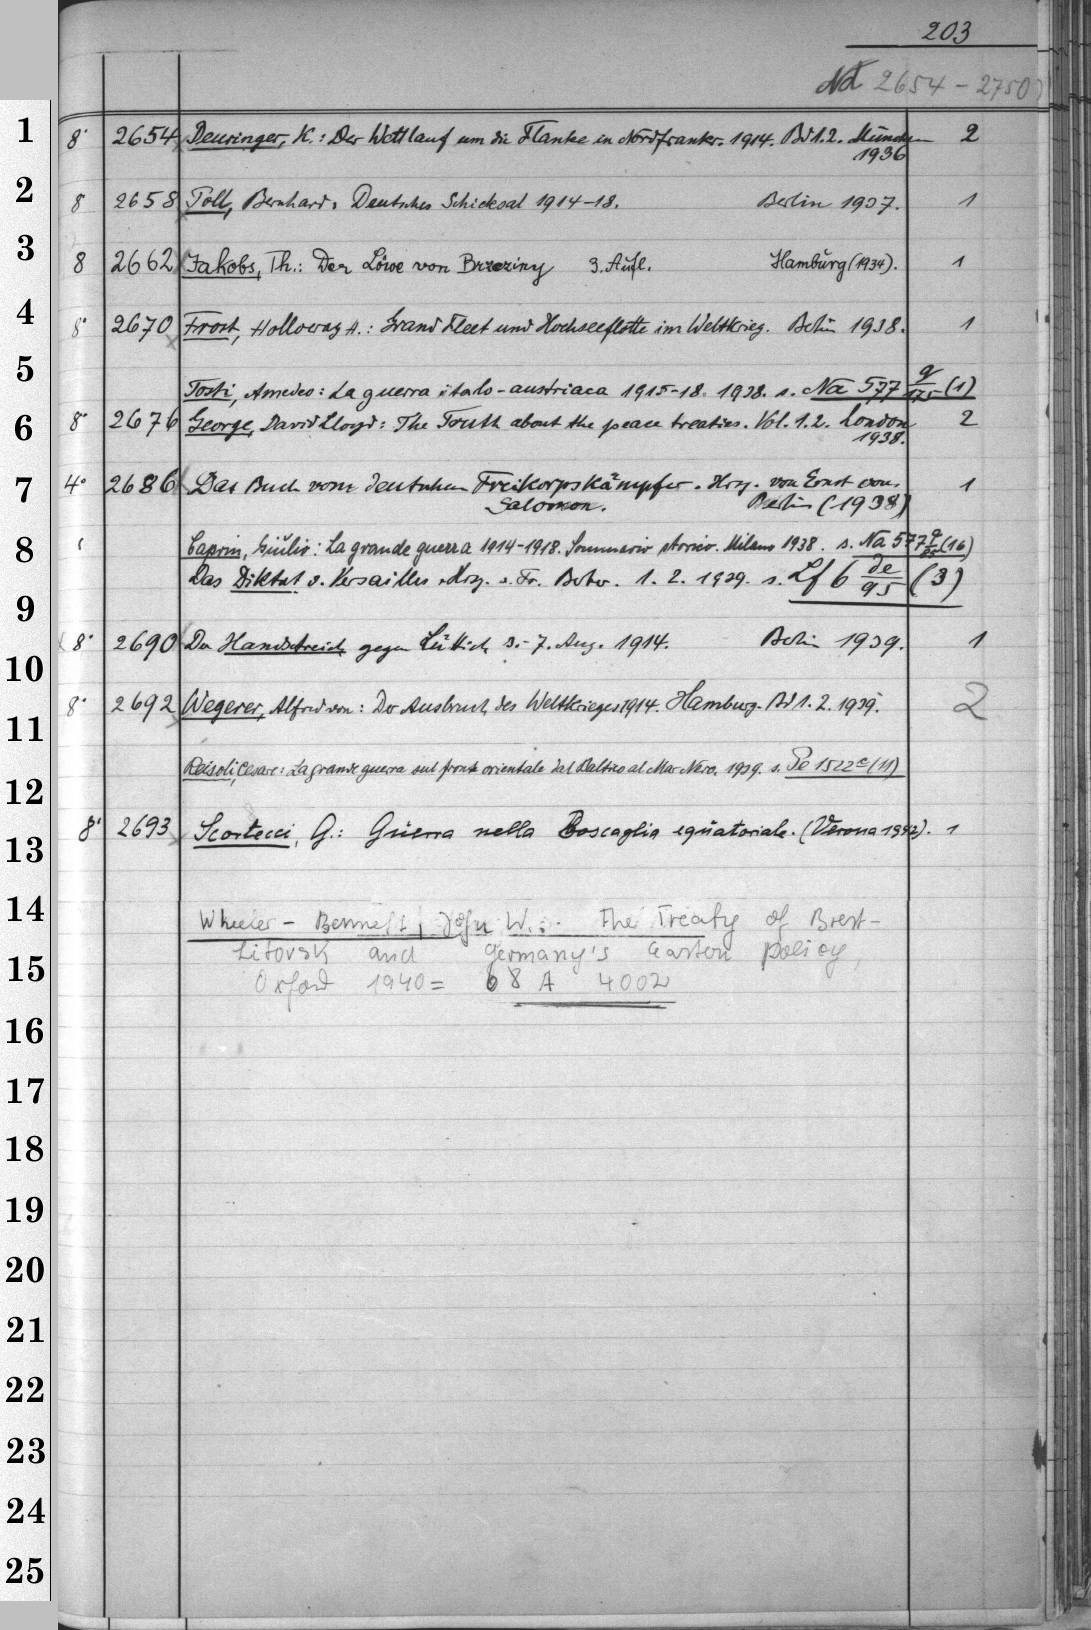 203
Nd 2654 - 2750
1 8° 2654 Deuringer, K.: Der Wettlauf um die Flanke in Nordfrankr. 1914. Bd 1.2. München 2
1936
2 8 2658 Poll, Bernhard: Deutsches Schicksal 1914-18. Berlin 1937. 1
3 8 2662 Jakobs, Th.: Der Löwe von Brzeziny 3. Aufl. Hamburg (1934). 1
4 8° 2670 Frost, Holloway H.: Grand Fleet und Hochseeflotte im Weltkrieg. Berlin 1938. 1
5 Tosti, Amedeo: La guerra italo-austriaca 1915-18. 1938. s. Na 577 g/175 (1)
6 8° 2676 George, David Lloyd: The Truth about the peace treaties. Vol. 1.2. London 2
1938.
7 4° 2686 Das Buch vom deutschen Freikorpskämpfer. Hrsg. von Ernst von 1
Salomon. Berlin (1938)
8 Caprin, Giulio: La grande guerra 1914-1918. Sommario storico. Milano 1938. s. Na 577 (16)
Das Diktat v. Versailles. Hrsg. v. Fr. Berber. 1. 2. 1939. s. Lf 6 de/95 (3)
9
8° 2690 Der Handstreich gegen Lüttich 3.-7. Aug. 1914. Berlin 1939. 1
10
8° 2692 Wegerer, Alfred von: Der Ausbruch des Weltkrieges 1914. Hamburg. Bd 1. 2. 1939. 2
11
Reisoli, Cesare: La grande guerra sul fronte orientale dal Baltico al Mar Nero. 1939. s. Pe 1522c (11)
12
8° 2693 Scortecci, G.: Guerra nella Boscaglia equatoriale. (Verona 1942). 1
13
14 Wheeler-Bennett, John W.: The Treaty of Brest-
Litovsk and Germany's Eastern policy,
15 Oxford 1940 = 68 A 4002
16
17
18
19
20
21
22
23
24
25